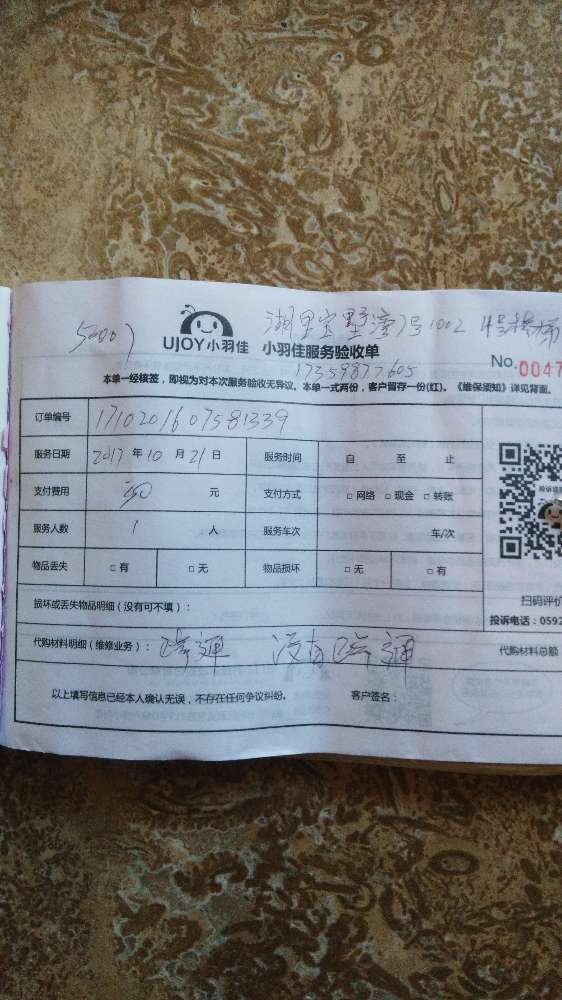 湖里宝墅湾7号1002 4号楼梯
UJOY小羽佳 小羽佳服务验收单
17359877605
No.0047
本单一经核签，即视为对本次服务验收无异议。本单一式两份，客户留存一份(红)。《维保须知》详见背面。
订单编号 1710201607581339
服务日期 2017 年 10 月 21 日 服务时间 自 至 止
支付费用 元 支付方式 □ 网络 □ 现金 □ 转账
服务人数 1 人 服务车次 车/次
物品丢失 □ 有 □ 无 物品损坏 □ 无 □ 有
扫码评价
损坏或丢失物品明细（没有可不填）：
投诉电话：0592
代购材料明细（维修业务）： 疏通 没有疏通 代购材料总额
以上填写信息已经本人确认无误，不存在任何争议纠纷。 客户签名：